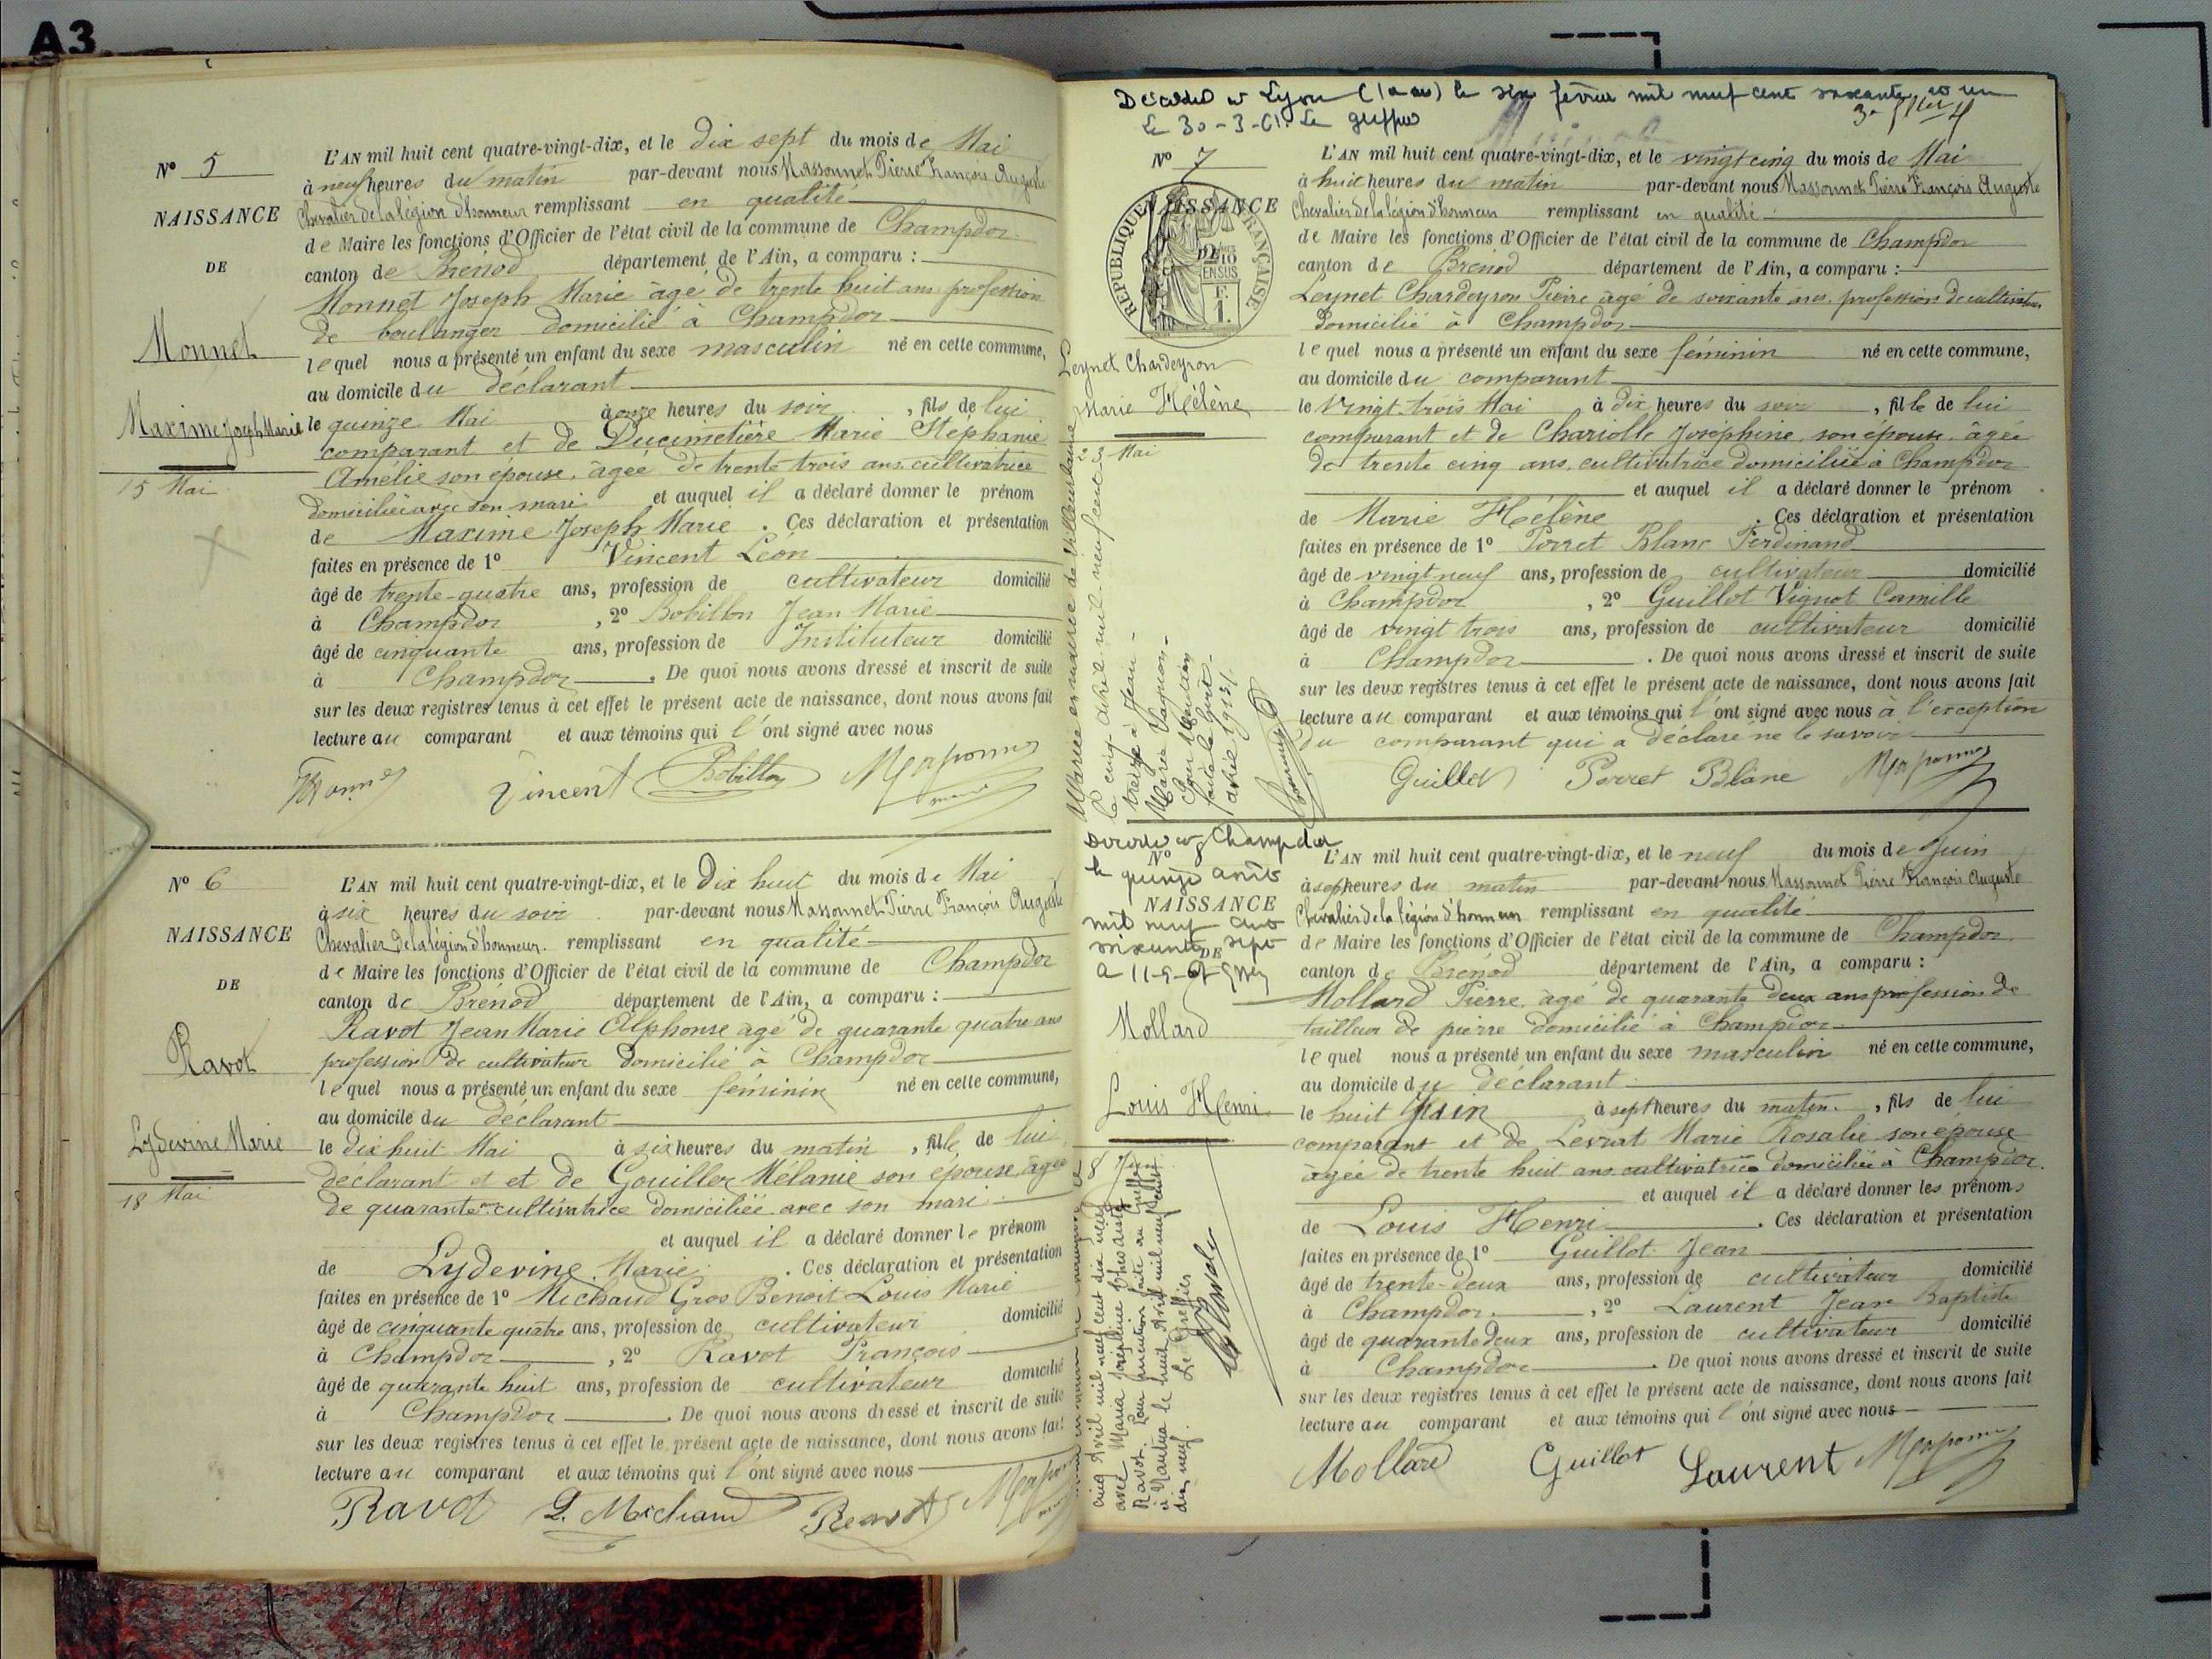 A3
N° 5
NAISSANCE
DE
Monnet
Maxime Joseph Marie
15 Mai
L'AN mil huit cent quatre-vingt-dix, et le dix sept du mois de Mai
à neuf heures du matin par-devant nous Massonnet Pierre François Auguste
Chevalier de la légion d'honneur remplissant en qualité
de Maire les fonctions d'Officier de l'état civil de la commune de Champdor
canton de Brénod département de l'Ain, a comparu :
Monnet Joseph Marie âgé de trente huit ans profession
de boulanger domicilié à Champdor
lequel nous a présenté un enfant du sexe masculin né en cette commune,
au domicile du déclarant
le quinze Mai à onze heures du soir, fils de lui
comparant et de Ducimetière Marie Stéphanie
Amélie son épouse, âgée de trente trois ans cultivatrice
domiciliée avec son mari et auquel il a déclaré donner le prénom
de Maxime Joseph Marie. Ces déclaration et présentation
faites en présence de 1° Vincent Léon
âgé de trente-quatre ans, profession de cultivateur domicilié
à Champdor, 2° Bobillon Jean Marie
âgé de cinquante ans, profession de Instituteur domicilié
à Champdor. De quoi nous avons dressé et inscrit de suite
sur les deux registres tenus à cet effet le présent acte de naissance, dont nous avons fait
lecture au comparant et aux témoins qui l'ont signé avec nous
Monnet Vincent Bobillon
N° 6
NAISSANCE
DE
Ravot
Lydevine Marie
18 Mai
L'AN mil huit cent quatre-vingt-dix, et le dix huit du mois de Mai
à six heures du soir par-devant nous Massonnet Pierre François Auguste
Chevalier de la légion d'honneur. remplissant en qualité
de Maire les fonctions d'Officier de l'état civil de la commune de Champdor
canton de Brénod département de l'Ain, a comparu :
Ravot Jean Marie Alphonse âgé de quarante quatre ans
profession de cultivateur domicilié à Champdor
lequel nous a présenté un enfant du sexe féminin né en cette commune,
au domicile du déclarant
le dix huit Mai à six heures du matin, fille de lui
déclarant et et de Gouilloz Mélanie son épouse, âgée
de quarante cultivatrice domiciliée avec son mari
et auquel il a déclaré donner le prénom
de Lydevine Marie. Ces déclaration et présentation
faites en présence de 1° Michaud Gros Benoit Louis Marie
âgé de cinquante quatre ans, profession de cultivateur domicilié
à Champdor, 2° Ravot François
âgé de quarante huit ans, profession de cultivateur domicilié
à Champdor. De quoi nous avons dressé et inscrit de suite
sur les deux registres tenus à cet effet le présent acte de naissance, dont nous avons fait
lecture au comparant et aux témoins qui l'ont signé avec nous
Ravot L. Michaud Ravot
Décédée à Lyon le six février mil neuf cent soixante et un
Le 30-3-61. Le greffier
N° 7
NAISSANCE
DE
REPUBLIQUE FRANÇAISE
2/10 EN SUS
Leynet Chardeyron
Marie Hélène
23 Mai
L'AN mil huit cent quatre-vingt-dix, et le vingt cinq du mois de Mai
à huit heures du matin par-devant nous Massonnet Pierre François Auguste
Chevalier de la légion d'honneur remplissant en qualité
de Maire les fonctions d'Officier de l'état civil de la commune de Champdor
canton de Brénod département de l'Ain, a comparu :
Leynet Chardeyron Pierre âgé de soixante ans, profession de cultivateur
domicilié à Champdor
lequel nous a présenté un enfant du sexe féminin né en cette commune,
au domicile du comparant
le Vingt trois Mai à dix heures du soir, fille de lui
comparant et de Chariolle Joséphine son épouse, âgée
de trente cinq ans, cultivatrice domiciliée à Champdor
et auquel il a déclaré donner le prénom
de Marie Hélène. Ces déclaration et présentation
faites en présence de 1° Perret Blanc Ferdinand
âgé de vingt neuf ans, profession de cultivateur domicilié
à Champdor, 2° Guillot Vignot Camille
âgé de vingt trois ans, profession de cultivateur domicilié
à Champdor. De quoi nous avons dressé et inscrit de suite
sur les deux registres tenus à cet effet le présent acte de naissance, dont nous avons fait
lecture au comparant et aux témoins qui l'ont signé avec nous à l'exception
du comparant qui a déclaré ne le savoir
Guillot Perret Blanc
Mariée en mairie de Villeurbanne
le cinq avril mil neuf cent
treize à Jean
Marie Vagnon
Pour mention
N° 8
NAISSANCE
DE
Décédé à Champdor
le quinze août
mil neuf cent
soixante sept
Mollard
Louis Henri
8 Juin
L'AN mil huit cent quatre-vingt-dix, et le neuf du mois de Juin
à sept heures du matin par-devant nous Massonnet Pierre François Auguste
Chevalier de la légion d'honneur remplissant en qualité
de Maire les fonctions d'Officier de l'état civil de la commune de Champdor
canton de Brénod département de l'Ain, a comparu :
Mollard Pierre, âgé de quarante deux ans profession de
tailleur de pierre domicilié à Champdor
lequel nous a présenté un enfant du sexe masculin né en cette commune,
au domicile du déclarant
le huit Juin à sept heures du matin, fils de lui
comparant et de Levrat Marie Rosalie son épouse
âgée de trente huit ans cultivatrice domiciliée à Champdor.
et auquel il a déclaré donner les prénoms
de Louis Henri. Ces déclaration et présentation
faites en présence de 1° Guillot Jean
âgé de trente-deux ans, profession de cultivateur domicilié
à Champdor, 2° Laurent Jean Baptiste
âgé de quarante deux ans, profession de cultivateur domicilié
à Champdor. De quoi nous avons dressé et inscrit de suite
sur les deux registres tenus à cet effet le présent acte de naissance, dont nous avons fait
lecture au comparant et aux témoins qui l'ont signé avec nous
Mollard Guillot Laurent
cinq Avril mil neuf cent dix neuf
avec Maria Joséphine
Ravot. Pour mention faite au greffe
à Nantua le huit Avril mil neuf cent
dix neuf. Le Greffier